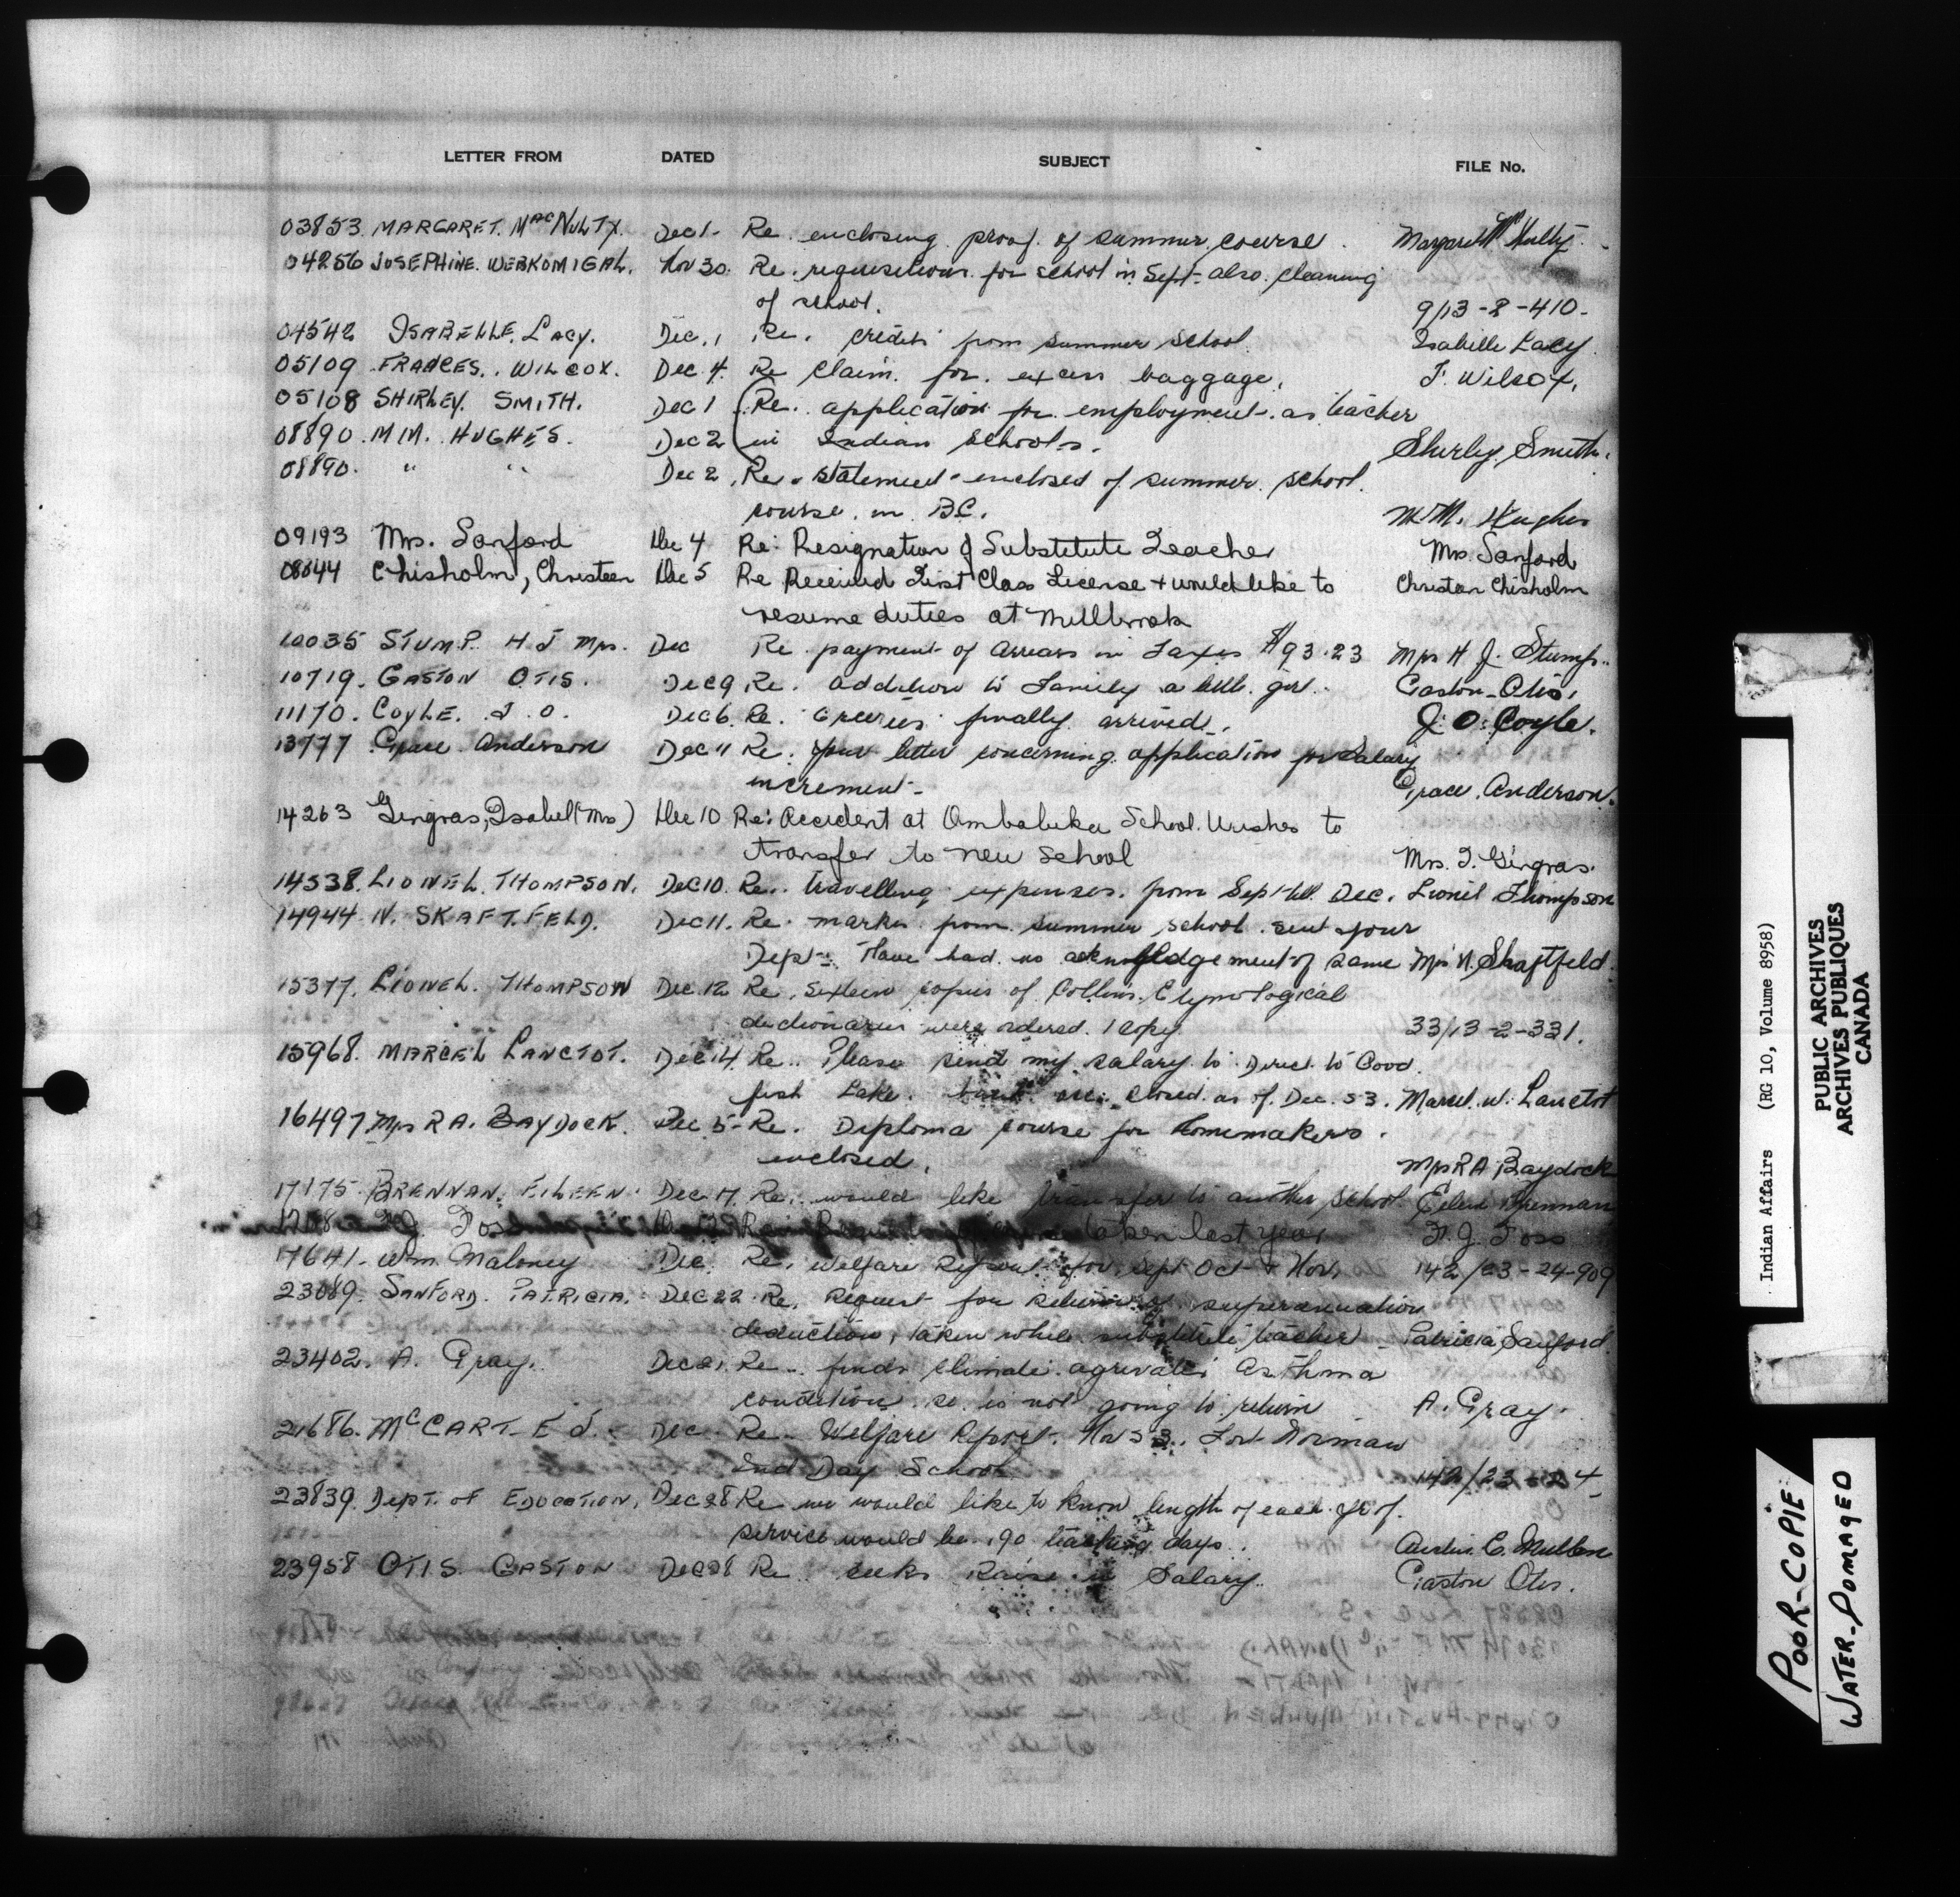 LETTER FROM DATED SUBJECT FILE No.
03853. MARGARET. MacNULTY. Dec 1- Re. enclosing proof of summer course. Margaret McNulty.
04256 JOSEPHINE. WEBKOMIGAL. Nov 30. Re. requisitions for school in Sept- also. cleaning
of school. 9/13-2-410-
04542 ISABELLE. LACY. Dec. 1 Re. credits from summer school. Isabille Lacy.
05109 FRANCES. WILCOX. Dec 4. Re claim. for. excess baggage. F. Wilcox.
05108 SHIRLEY. SMITH. Dec 1 (Re. application for employment as teacher
08890. M M. HUGHES. Dec 2 in Indian Schools. Shirley. Smith.
08890. " " Dec 2. Re. statement enclosed of summer school
course. in B.C. M.M. Hughes
09193 Mrs. Sanford Dec 4 Re: Resignation of Substitute Teacher Mrs. Sanford
08844 Chisholm, Christeen Dec 5 Re Received First Class License + would like to Christeen Chisholm
resume duties at Millbrook
10035 STUMP. H J Mrs. Dec Re. payment of Arrears in Taxes $93.23 Mrs H J. Stump.
10719. GASTON OTIS. Dec 9 Re. addition to Family a little girl. Gaston-Otis.
11170. COYLE. J. O. Dec 6. Re. Groceries finally arrived. J. O. Coyle.
13777 Grace Anderson Dec 11 Re. your letter concerning application for salary
increment- Grace. Anderson.
14263 Gingras, Isabel (Mrs) Dec 10 Re: Accident at School. Wishes to
transfer to new School Mrs. I. Gingras.
14538. LIONEL. THOMPSON. Dec 10. Re. travelling expenses. from Sept- till Dec. Lionel Thompson
14944- N. SKAFTFELD. Dec 11. Re. marks from summer school sent your
Dept- Have had no acknowledgement of same Mrs N. Skaftfeld.
15377. LIONEL. THOMPSON Dec. 12 Re. Sixteen copies of Collins. Etymological
dictionaries were ordered. 1 copy 33/13-2-331.
15968. MARCEL LANCTOT. Dec 14. Re. Please send my salary to Direct to Good
fish Lake. closed as of Dec. 53. Marcel. W. Lanctot
16497 Mrs R A. BAYDOCK. Dec 5- Re. Diploma course for homemakers.
enclosed. Mrs R A Baydock
17175. BRENNAN. EILEEN. Dec 17. Re. would like transfer to another school. Eileen Brennan
Foss taken last year F. J. Foss
17641. Wm. Maloney Dec. Re. Welfare Report for. Sept Oct + Nov. 142/23-24-909
23089. SANFORD. PATRICIA. Dec 22 Re. Request for return of superannuation
deduction, taken while substitute teacher - Patricia Sanford.
23402. A. Gray. Dec 21. Re. finds climate agrivates Asthma
condition. so is not going to return A. Gray.
21686. McCART- E J. Dec- Re- Welfare Report. Nov 53. Fort Norman
Ind Day School. 142/23-24-
23839. DEPT. OF EDUCATION. Dec 28 Re we would like to know length of each yr of.
service would be 190 teaching days.
23958 OTIS. GASTON Dec 28 Re seeks Raise in Salary. Gaston Otis.
Indian Affairs (RG 10, Volume 8958)
PUBLIC ARCHIVES
ARCHIVES PUBLIQUES
CANADA
POOR-COPIE
WATER-DOMAGED